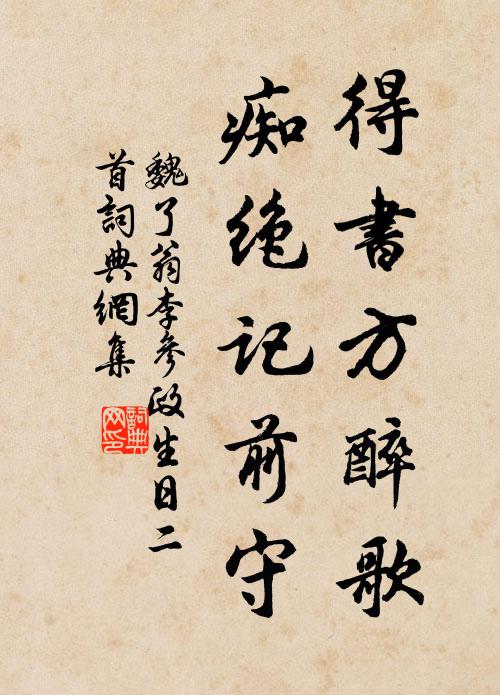 得書方醉歌
痴絶記前守
魏了翁李參政生日二
首詞典網集
詞典
网印